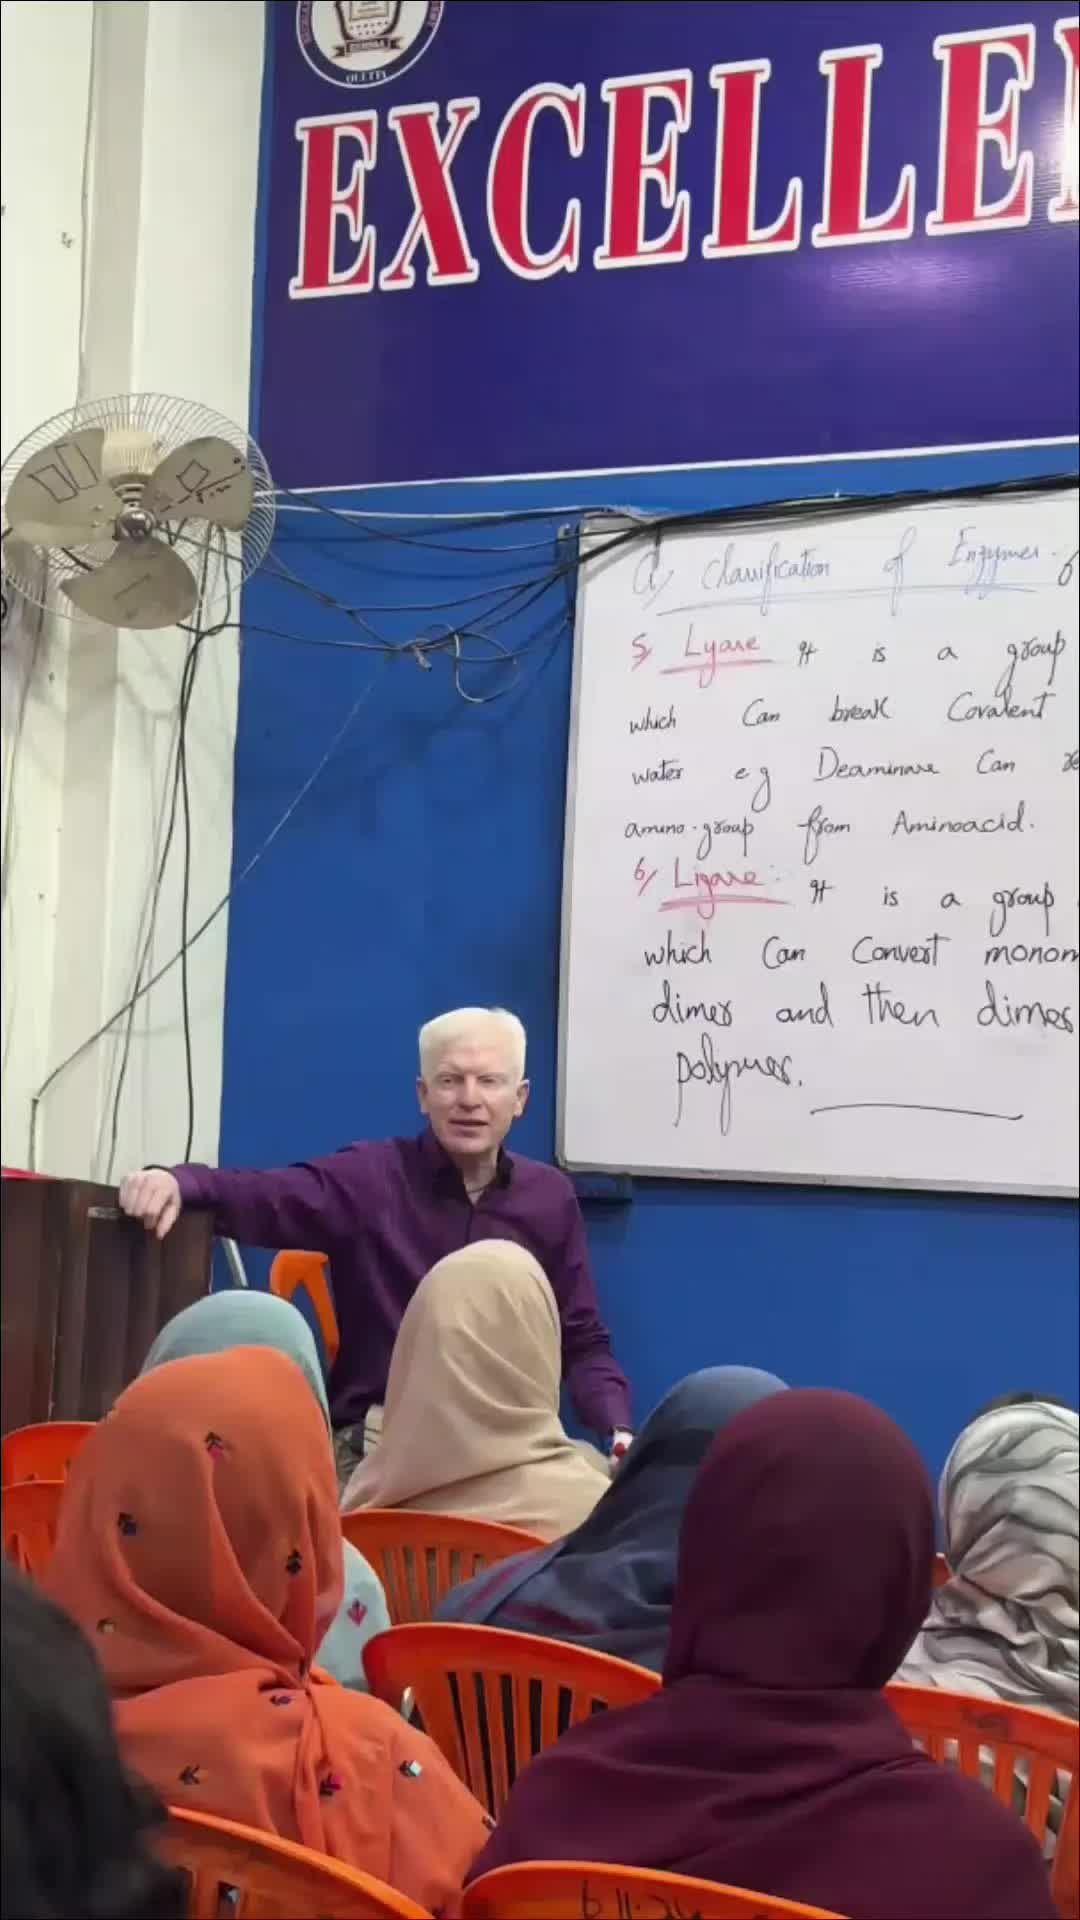 QUETTA
EXCELLEN
a, Classification of Enzymes. 6
5, Lyase It is a group
which Can break Covalent
water eg Deaminase Can re
amino-group from Aminoacid.
6/ Ligase: It is a group
which Can Convert monom
dimer and then dimer
polymer.
6.11.24